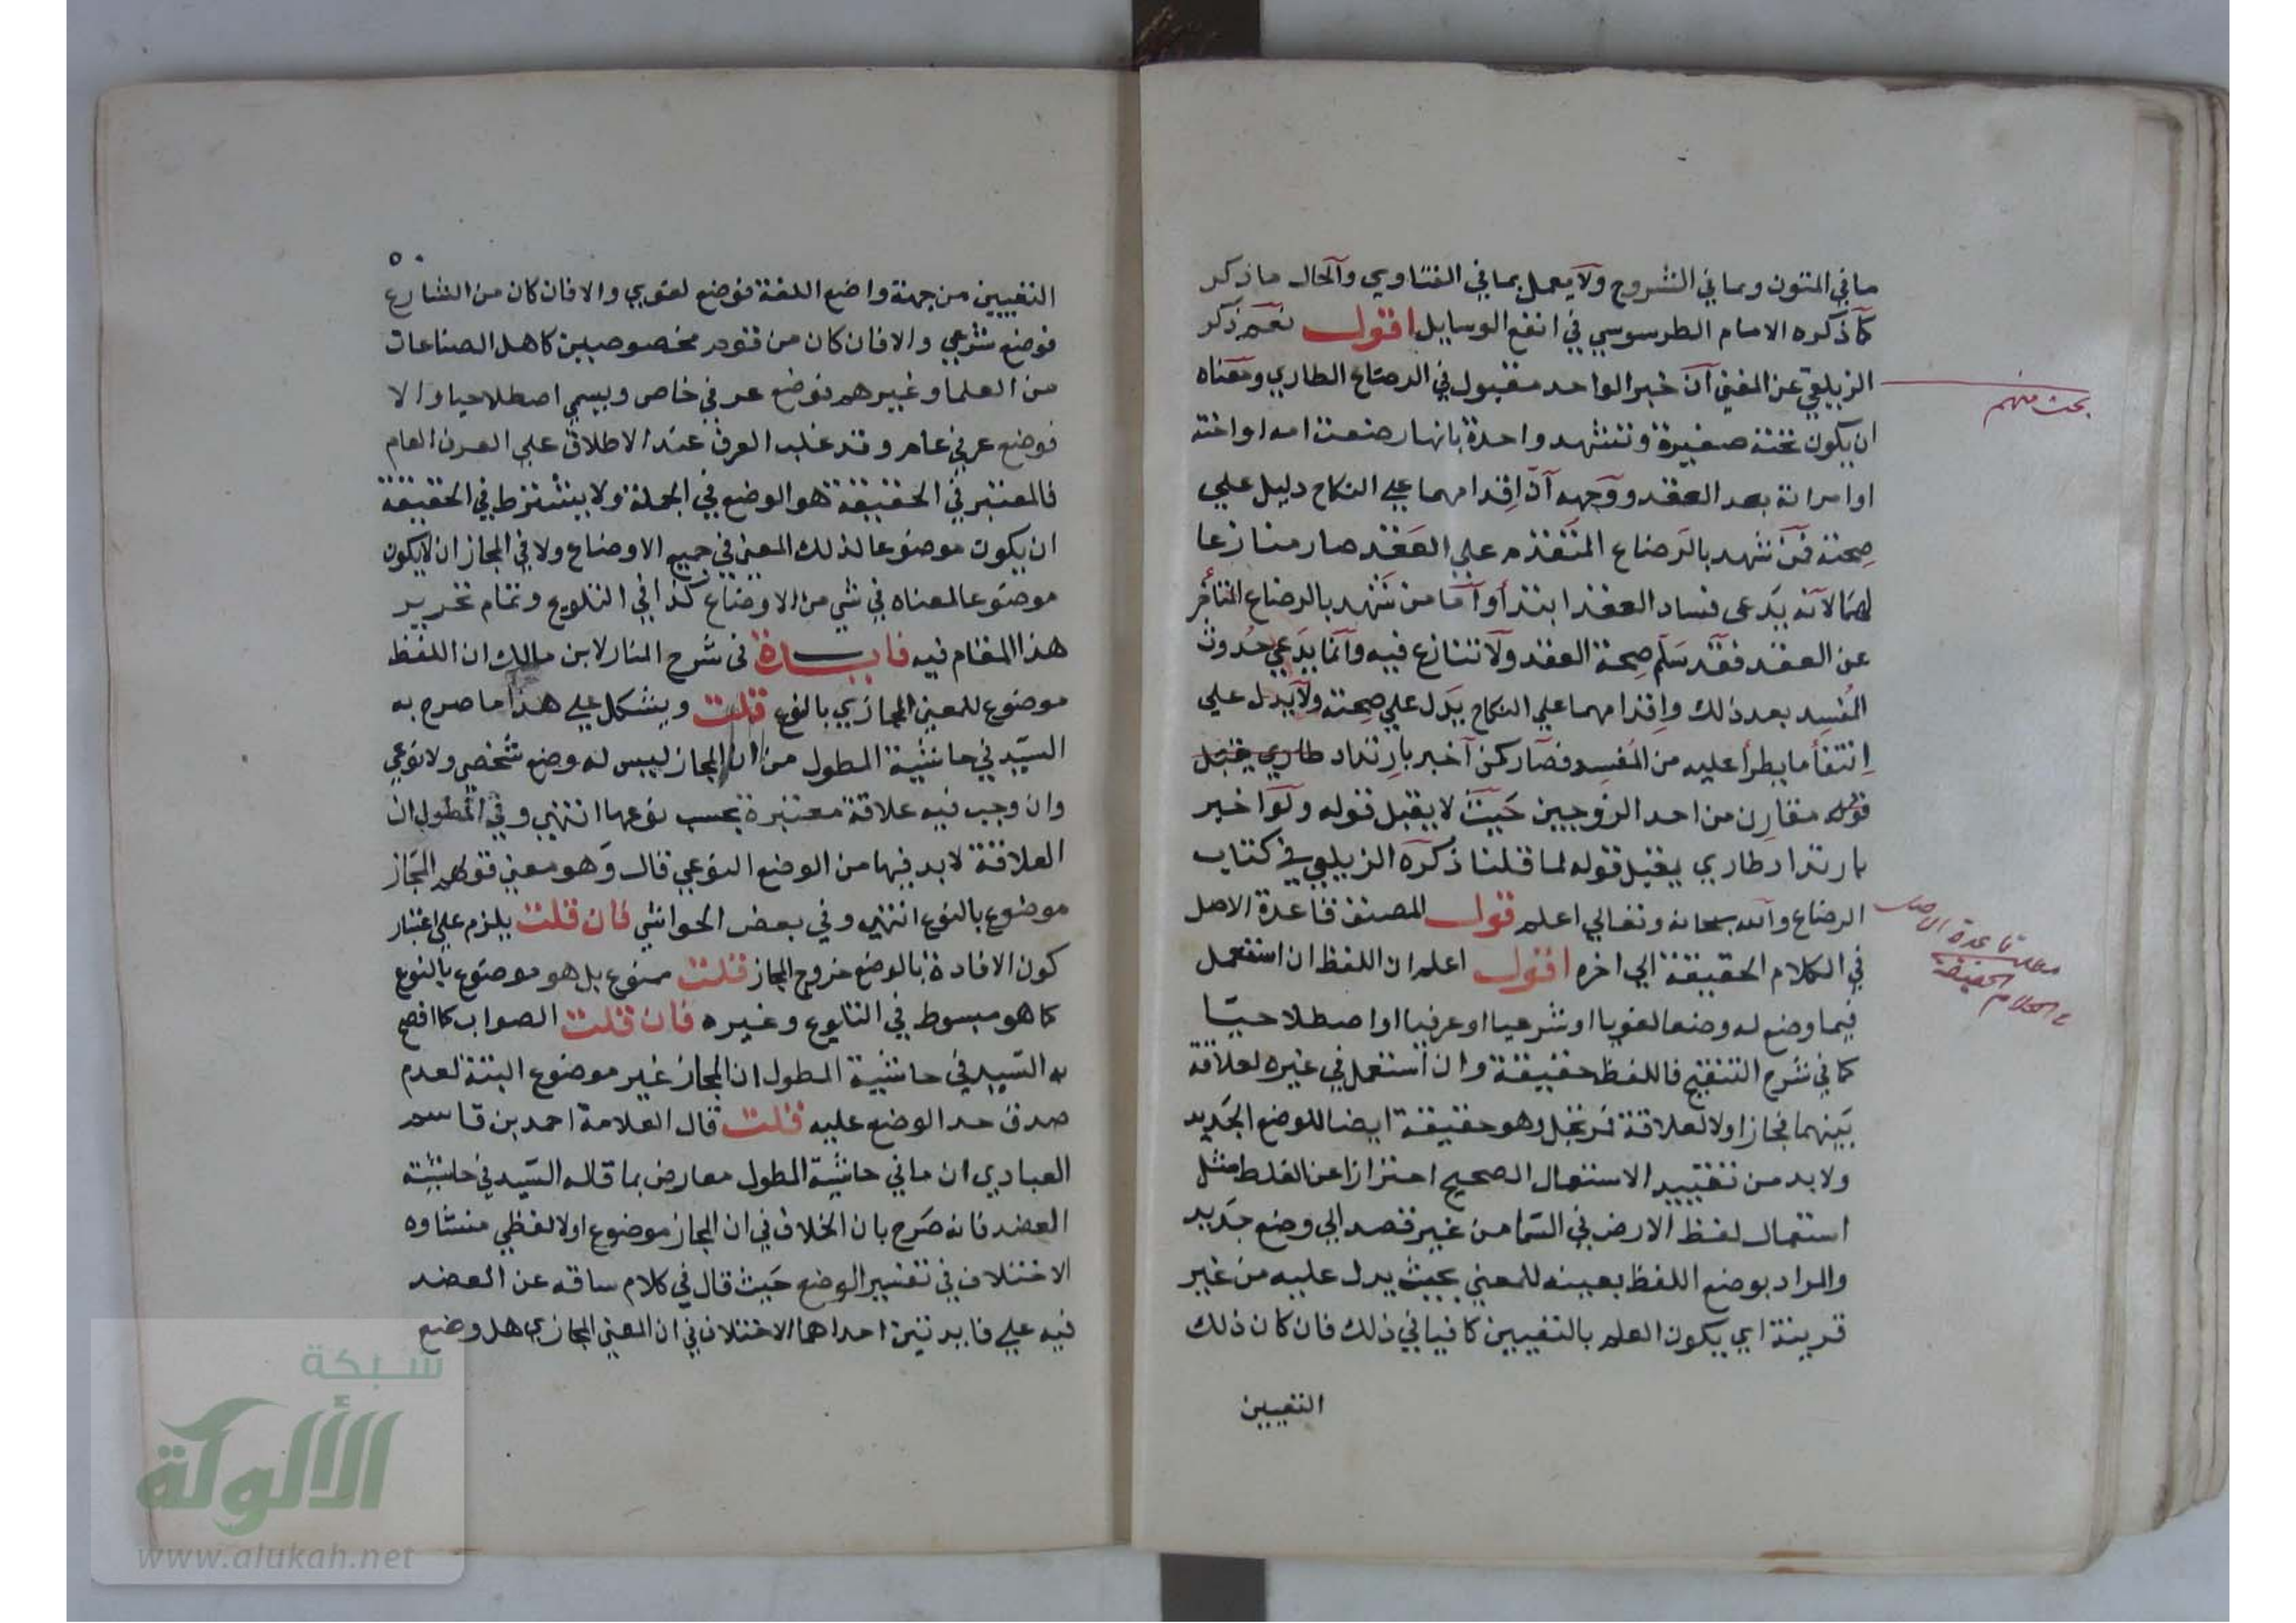 ما في المتون وبما في الشروح ولا يعمل بما في الفتاوي والحال ما ذكر
كما ذكره الامام الطرسوسي في انفع الوسايل اقول نعم ذكر
الزيلعي عن المغني ان خبر الواحد مقبول في الرضاع الطاري ومعناه
ان يكون تحته صغيرة وتشهد واحدة بانها رضعت امه او اخته
او امراته بعد العقد ووجهه ان اقدامهما على النكاح دليل علي
صحته فمن شهد بالرضاع المتقدم علي العقد صار منازعا
لهما لانه يدعى فساد العقد ابتدأ واما من شهد بالرضاع المتأخر
عن العقد فقد سلم صحة العقد ولا تنازع فيه وانما يدعي حدوث
المفسد بعد ذلك واقدامهما علي النكاح يدل علي صحته ولا يدل علي
انتفأ ما يطرأ عليه من المفسد فصار كمن اخبر بارتداد طاري يقبل
قوله مقارن من احد الزوجين حيث لا يقبل قوله ولو اخبر
بارتداد طاري يقبل قوله لما قلنا ذكره الزيلعي في كتاب
الرضاع والله سبحانه وتعالي اعلم قول المصنف قاعدة الاصل
في الكلام الحقيقة الي اخره اقول اعلم ان اللفظ ان استعمل
فيما وضع له وضعا لغويا او شرعيا او عرفيا او اصطلاحيا
كما في شرح التنقيح فاللفظ حقيقة وان استعمل في غيره لعلاقة
بينهما فمجاز اولا لعلاقة فمرتجل وهو حقيقة ايضا للوضع الجديد
ولا بد من تقييد الاستعمال الصحيح احترازا عن الغلط مثل
استعمال لفظ الارض في السما من غير قصد الي وضع جديد
والمراد بوضع اللفظ بعينه للمعني بحيث يدل عليه من غير
قرينة اي يكون العلم بالتعيين كافيا في ذلك فان كان ذلك
التعيين
بحث مهم
مطلب قاعدة الاصل
في الكلام الحقيقة
٥٠
التعيين من جهة واضع اللغة فوضع لغوي والا فان كان من الشارع
فوضع شرعي والا فان كان من قوم مخصوصين كاهل الصناعات
من العلما وغيرهم فوضع عرفي خاص ويسمي اصطلاحيا والا
فوضع عرفي عام وقد غلب العرف عند الاطلاق علي العرف العام
فالمعتبر في الحقيقة هو الوضع في الجملة ولا يشترط في الحقيقة
ان يكون موضوعا لذلك المعني في جميع الاوضاع ولا في المجاز ان لا يكون
موضوعا لمعناه في شي من الاوضاع كذا في التلويح وتمام تحرير
هذا المقام فيه فايدة في شرح المنار لابن مالك ان اللفظ
موضوع للمعني المجازي بالنوع قلت ويشكل علي هذا ما صرح به
السيد في حاشية المطول من ان المجاز ليس له وضع شخصي ولا نوعي
وان وجب فيه علاقة معتبرة بحسب نوعها انتهي وفي المطول ان
العلاقة لا بد فيها من الوضع النوعي قال وهو معني قولهم المجاز
موضوع بالنوع انتهي وفي بعض الحواشي فان قلت يلزم علي اعتبار
كون الافادة بالوضع خروج المجاز قلت ممنوع بل هو موضوع بالنوع
كما هو مبسوط في التلويح وغيره فان قلت الصواب كما افصح
به السيد في حاشية المطول ان المجاز غير موضوع البتة لعدم
صدق حد الوضع عليه قلت قال العلامة احمد بن قاسم
العبادي ان ما في حاشية المطول معارض بما قاله السيد في حاشية
العضد فانه صرح بان الخلاف في ان المجاز موضوع اولا لفظي منشاوه
الاختلاف في تفسير الوضع حيث قال في كلام ساقه عن العضد
فيه علي فايدتين احداهما الاختلاف في ان المعني المجازي هل وضع
شبكة
الألوكة
www.alukah.net